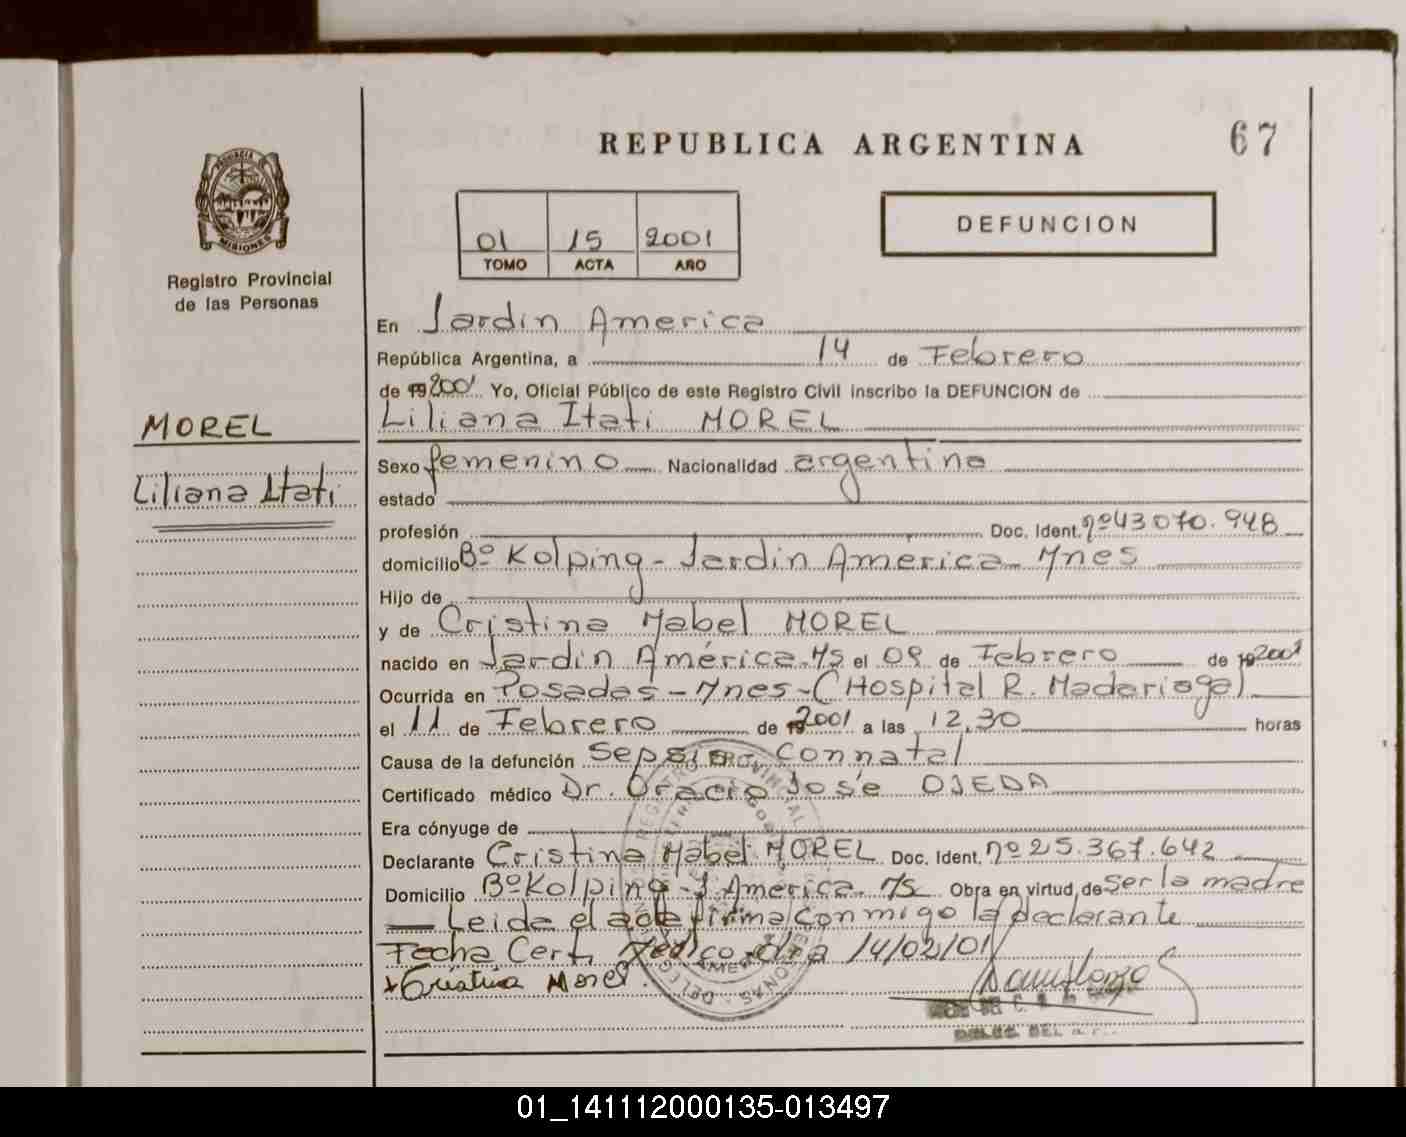 REPUBLICA ARGENTINA
67
PROVINCIA DE MISIONES
Registro Provincial
de las Personas
01 15 2001
TOMO ACTA AÑO
DEFUNCION
MOREL
Liliana Itati
En Jardin America
República Argentina, a 14 de Febrero
de 2001 Yo, Oficial Público de este Registro Civil inscribo la DEFUNCION de
Liliana Itati MOREL
Sexo femenino Nacionalidad argentina
estado
profesión Doc. Ident. nº43070.948
domicilio Bº Kolping - Jardin America Mnes
Hijo de
y de Cristina Mabel MOREL
nacido en Jardin América Ms el 09 de Febrero de 2001
Ocurrida en Posadas - Mnes - (Hospital R. Madariaga)
el 11 de Febrero de 2001 a las 12,30 horas
Causa de la defunción Sepsis Connatal
Certificado médico Dr. Oracio José OJEDA
Era cónyuge de
Declarante Cristina Mabel MOREL Doc. Ident. nº 25.367.642
Domicilio Bº Kolping - J. America Ms Obra en virtud de ser la madre
Leida el acta firma conmigo la declarante
Fecha Cert. Medico dia 14/02/01
Cristina Morel.
01_141112000135-013497